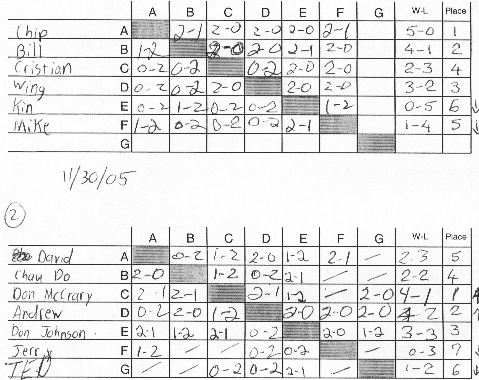 A B C D E F G W-L Place
Chip A 2-1 2-0 2-0 2-0 2-1 5-0 1
Bill B 1-2 2-0 2-0 2-1 2-0 4-1 2
Cristian C 0-2 0-2 0-2 2-0 2-0 2-3 4
Wing D 0-2 0-2 2-0 2-0 2-0 3-2 3
Kin E 0-2 1-2 0-2 0-2 1-2 0-5 6 ↓
Mike F 1-2 0-2 0-2 0-2 2-1 1-4 5 ↓
G
11/30/05
2
A B C D E F G W-L Place
David A 0-2 1-2 2-0 1-2 2-1 – 2-3 5
Chau Do B 2-0 1-2 0-2 2-1 / / 2-2 4
Don McCrary C 2-1 2-1 2-1 1-2 / 2-0 4-1 1
Andrew D 0-2 2-0 1-2 2-0 2-0 2-0 4-2 2
Don Johnson E 2-1 1-2 2-1 0-2 2-0 1-2 3-3 3
Jerry F 1-2 / / 0-2 0-2 / 0-3 7 ↓
TED G / / 0-2 0-2 2-1 / 1-2 6 ↓